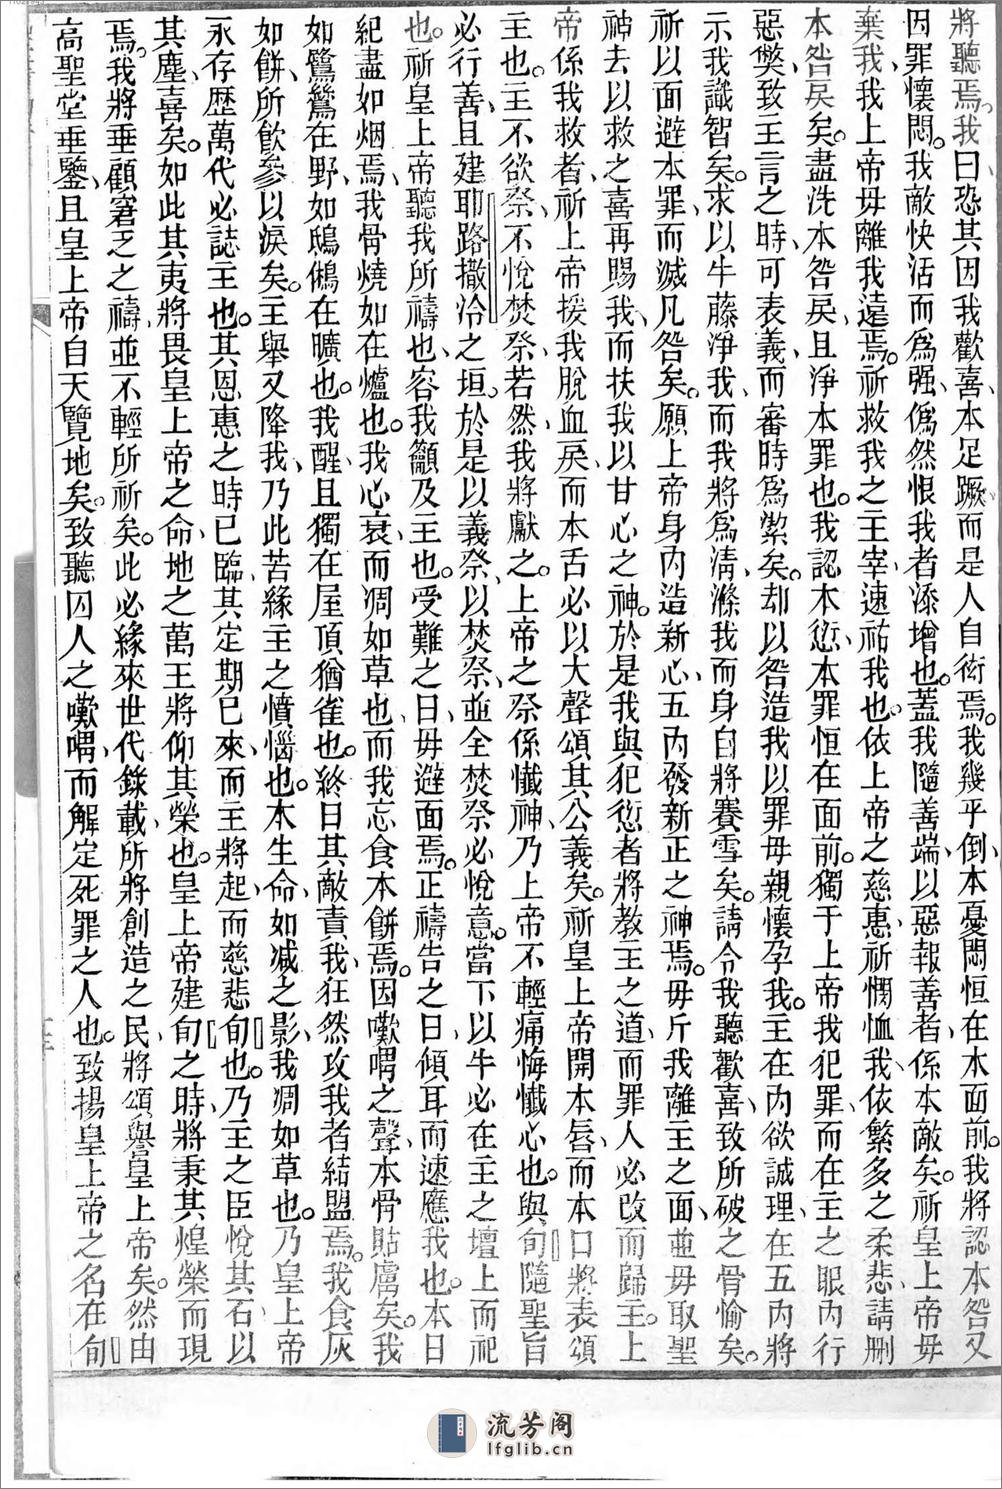 將聽焉我曰恐其因我歡喜本足蹶而是人自衒焉我幾乎倒本憂悶恒在本面前我將認本咎又
因罪懷悶我敵快活而爲强僞然恨我者添增也蓋我隨善端以惡報善者係本敵矣祈皇上帝毋
棄我我上帝毋離我遠焉祈救我之主宰速祐我也依上帝之慈惠祈憫恤我依繁多之柔悲請刪
本咎戾矣盡洗本咎戾且淨本罪也我認本愆本罪恒在面前獨于上帝我犯罪而在主之眼內行
惡獘致主言之時可表義而審時爲潔矣却以咎造我以罪母親懷孕我主在內欲誠理在五內將
示我識智矣求以牛藤淨我而我將爲清滌我而身自將賽雪矣請令我聽歡喜致所破之骨愉矣
祈以面避本罪而滅凡咎矣願上帝身內造新心五內發新正之神焉毋斥我離主之面並毋取聖
神去以救之喜再賜我而扶我以甘心之神於是我與犯愆者將敎主之道而罪人必改而歸主上
帝係我救者祈上帝援我脫血戾而本舌必以大聲頌其公義矣祈皇上帝開本唇而本口將表頌
主也主不欲祭不悅焚祭若然我將獻之上帝之祭係懺神乃上帝不輕痛悔懺心也與旬隨聖旨
必行善且建耶路撒冷之垣於是以義祭以焚祭並全焚祭必悅意當下以牛必在主之壇上而祀
也祈皇上帝聽我所禱也容我籲及主也受難之日毋避面焉正禱告之日傾耳而速應我也本日
紀盡如烟焉我骨燒如在爐也我心衰而凋如草也而我忘食本餅焉因嘆喟之聲本骨貼膚矣我
如鷺鷥在野如鴟鵂在曠也我醒且獨在屋頂猶雀也終日其敵責我狂然攻我者結盟焉我食灰
如餅所飲參以淚矣主舉又降我乃此苦緣主之憤惱也本生命如減之影我凋如草也乃皇上帝
永存歷萬代必誌主也其恩惠之時已臨其定期已來而主將起而慈悲旬也乃主之臣悅其石以
其塵喜矣如此其夷將畏皇上帝之命地之萬王將仰其榮也皇上帝建旬之時將秉其煌榮而現
焉我將垂顧窘乏之禱並不輕所祈矣此必緣來世代錄載所將創造之民將頌譽皇上帝矣然由
高聖堂垂鑒且皇上帝自天覽地矣致聽囚人之嘆喟而解定死罪之人也致揚皇上帝之名在旬
流芳阁
lfglib.cn